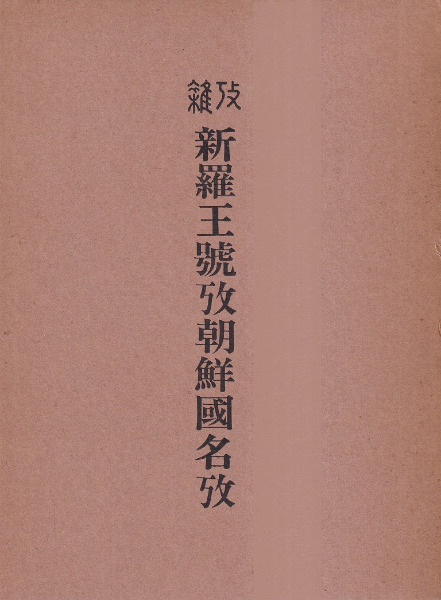 雜攷
新羅王號攷朝鮮國名攷